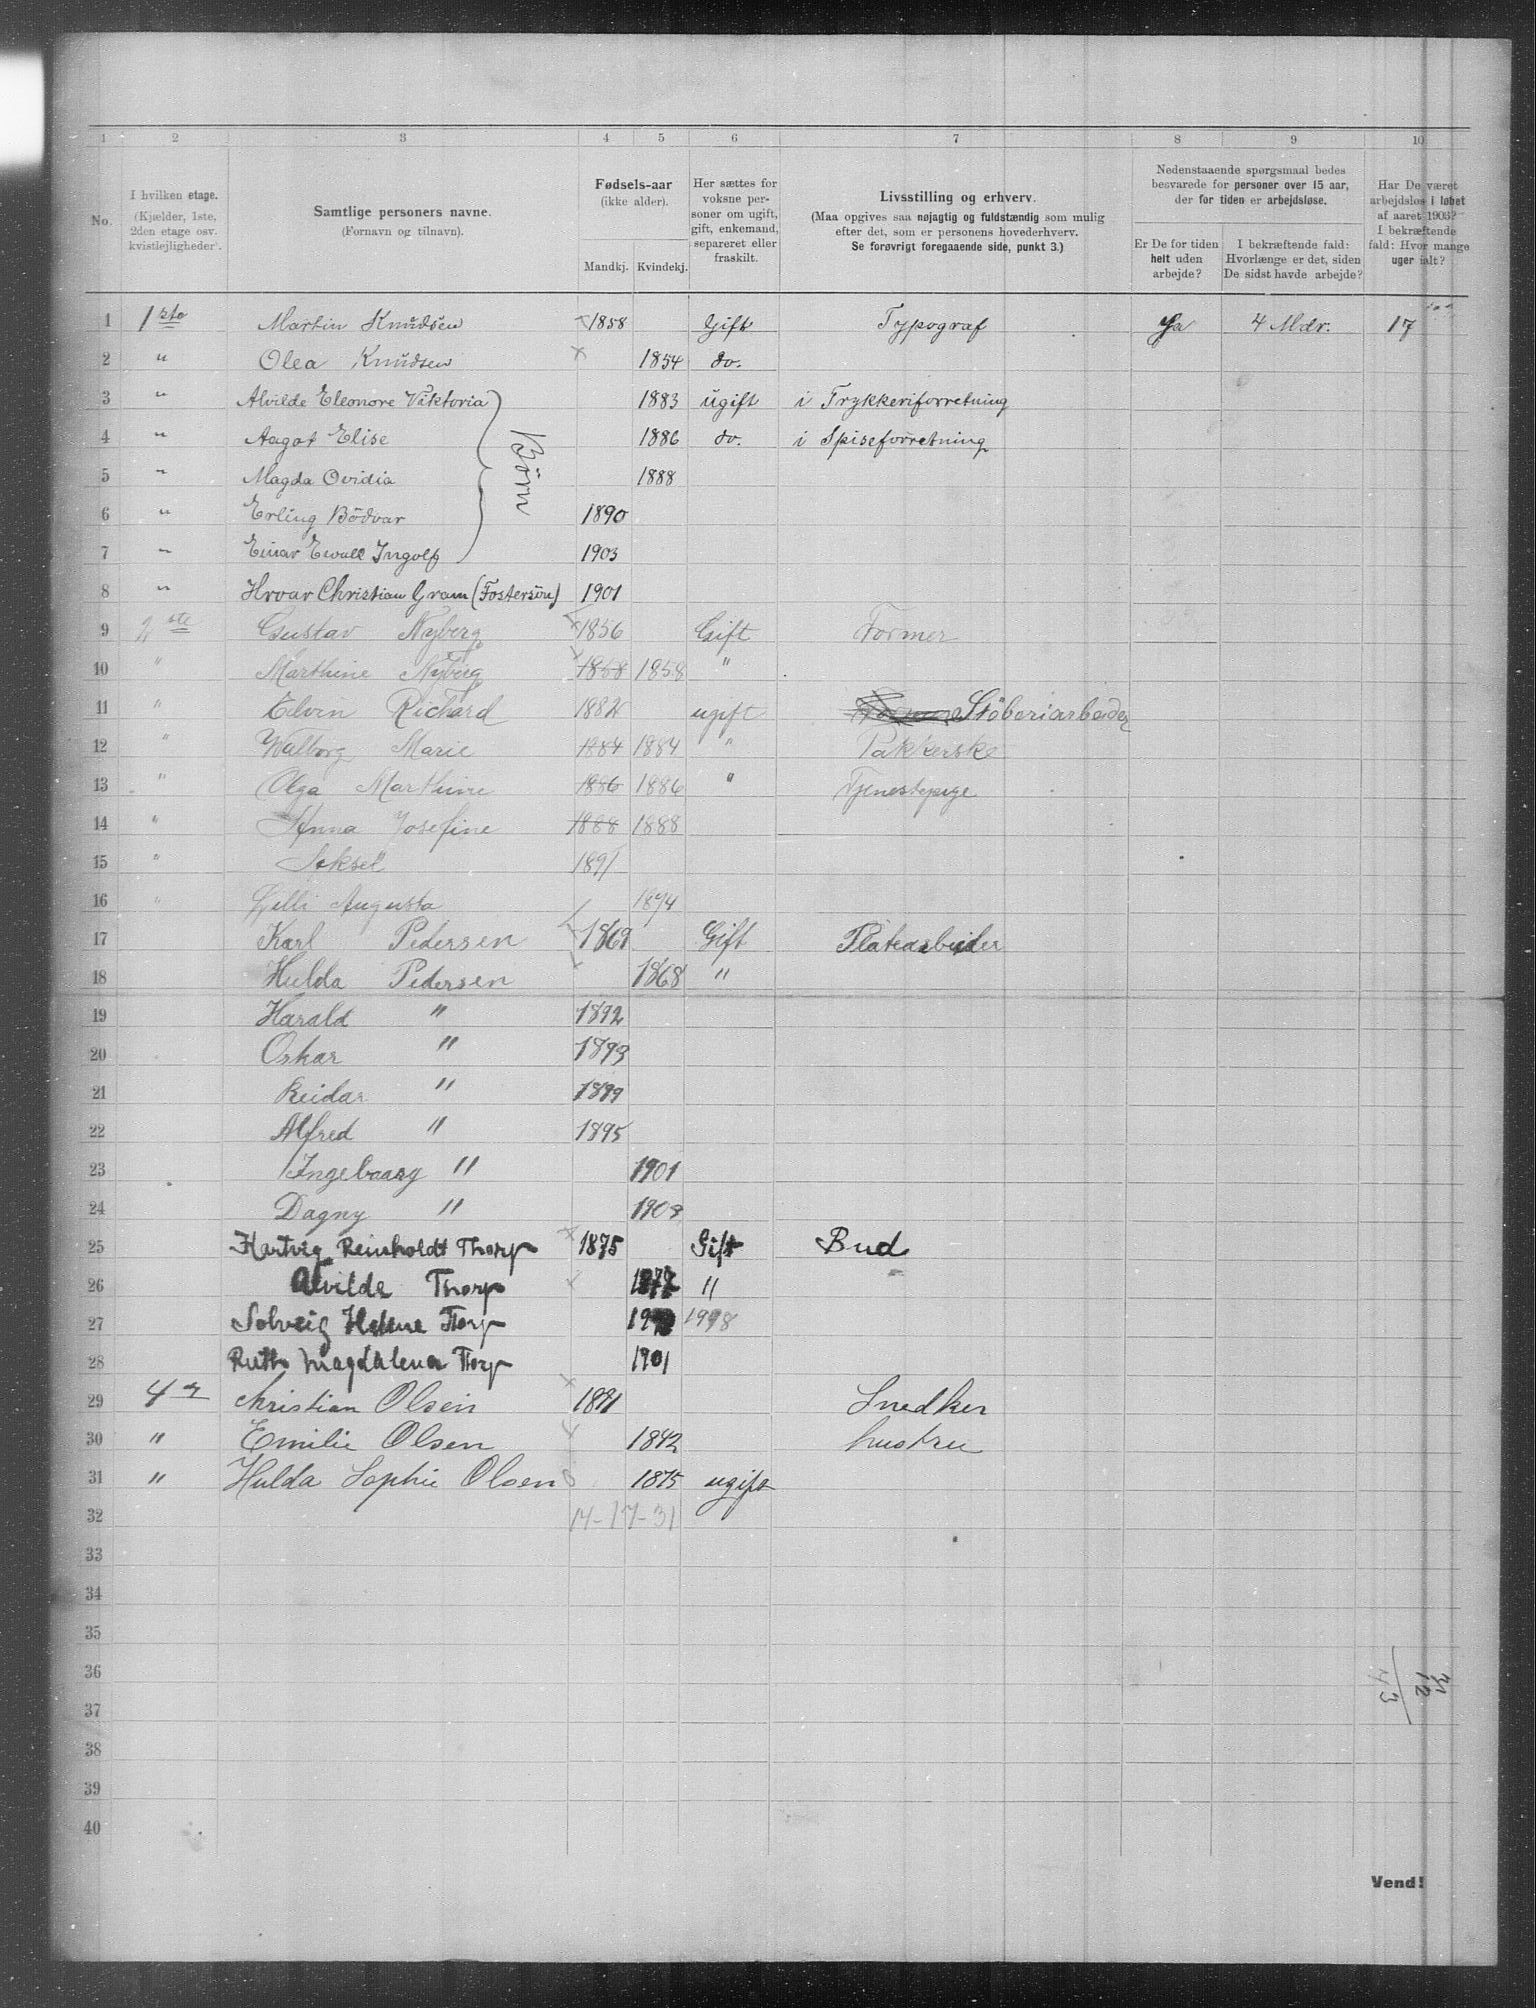 1 2 3 4 5 6 7 8 9 10
No.
I hvilken etage.
(Kjælder, 1ste,
2den etage osv.
kvistlejligheder).
Samtlige personers navne.
(Fornavn og tilnavn).
Fødsels-aar
(ikke alder).
Mandkj. Kvindekj.
Her sættes for
voksne per-
soner om ugift,
gift, enkemand,
separeret eller
fraskilt.
Livsstilling og erhverv.
(Maa opgives saa nøjagtig og fuldstændig som mulig
efter det, som er personens hovederhverv.
Se forøvrigt foregaaende side, punkt 3.)
Nedenstaaende spørgsmaal bedes
besvarede for personer over 15 aar,
der for tiden er arbejdsløse.
Er De for tiden
helt uden
arbejde?
I bekræftende fald:
Hvorlænge er det, siden
De sidst havde arbejde?
Har De været
arbejdsløs i løbet
af aaret 1903?
I bekræftende
fald: Hvor mange
uger ialt?
1 1ste Martin Knudsen 1858 Gift Typograf Ja 4 Mdr. 17
2 " Olea Knudsen 1854 do.
3 " Alvilde Eleonore Viktoria 1883 ugift i Trykkeriforretning
4 " Aagot Elise 1886 do. i Spiseforretning
5 " Magda Ovidia 1888
Børn
6 " Erling Bödvar 1890
7 " Einar Ewall Ingolf 1903
8 " Hroar Christian Gram (Fostersön) 1901
9 2 Gustav Nyberg 1856 Gift Former
10 " Marthine Nyberg 1858 1858 "
11 " Edvin Richard 1882 ugift Stöberiarbeder
12 " Walborg Marie 1884 1884 " Pakkerske
13 " Olga Marthine 1886 1886 " Tjenestepige
14 " Anna Josefine 1888 1888
15 " Aksel 1891
16 " Lilli Augusta 1894
17 Karl Pedersen 1869 Gift Platearbeider
18 Hulda Pedersen 1868 "
19 Harald " 1892
20 Oskar " 1893
21 Reidar " 1899
22 Alfred " 1895
23 Ingeboarg " 1901
24 Dagny " 1903
25 Hartvig Reinholdt Thorp 1875 Gift Bud
26 Alvilde Thorp 1877 "
27 Solveig Helene Torp 1998
28 Ruth Magdalena Torp 1901
29 4 Christian Olsen Snedker
30 " Emilie Olsen 1842 hustru
31 " Hulda Sophie Olsen 1875 ugift
32 14-17-31
33
34
35
36 31
12
43
37
38
39
40
Vend!